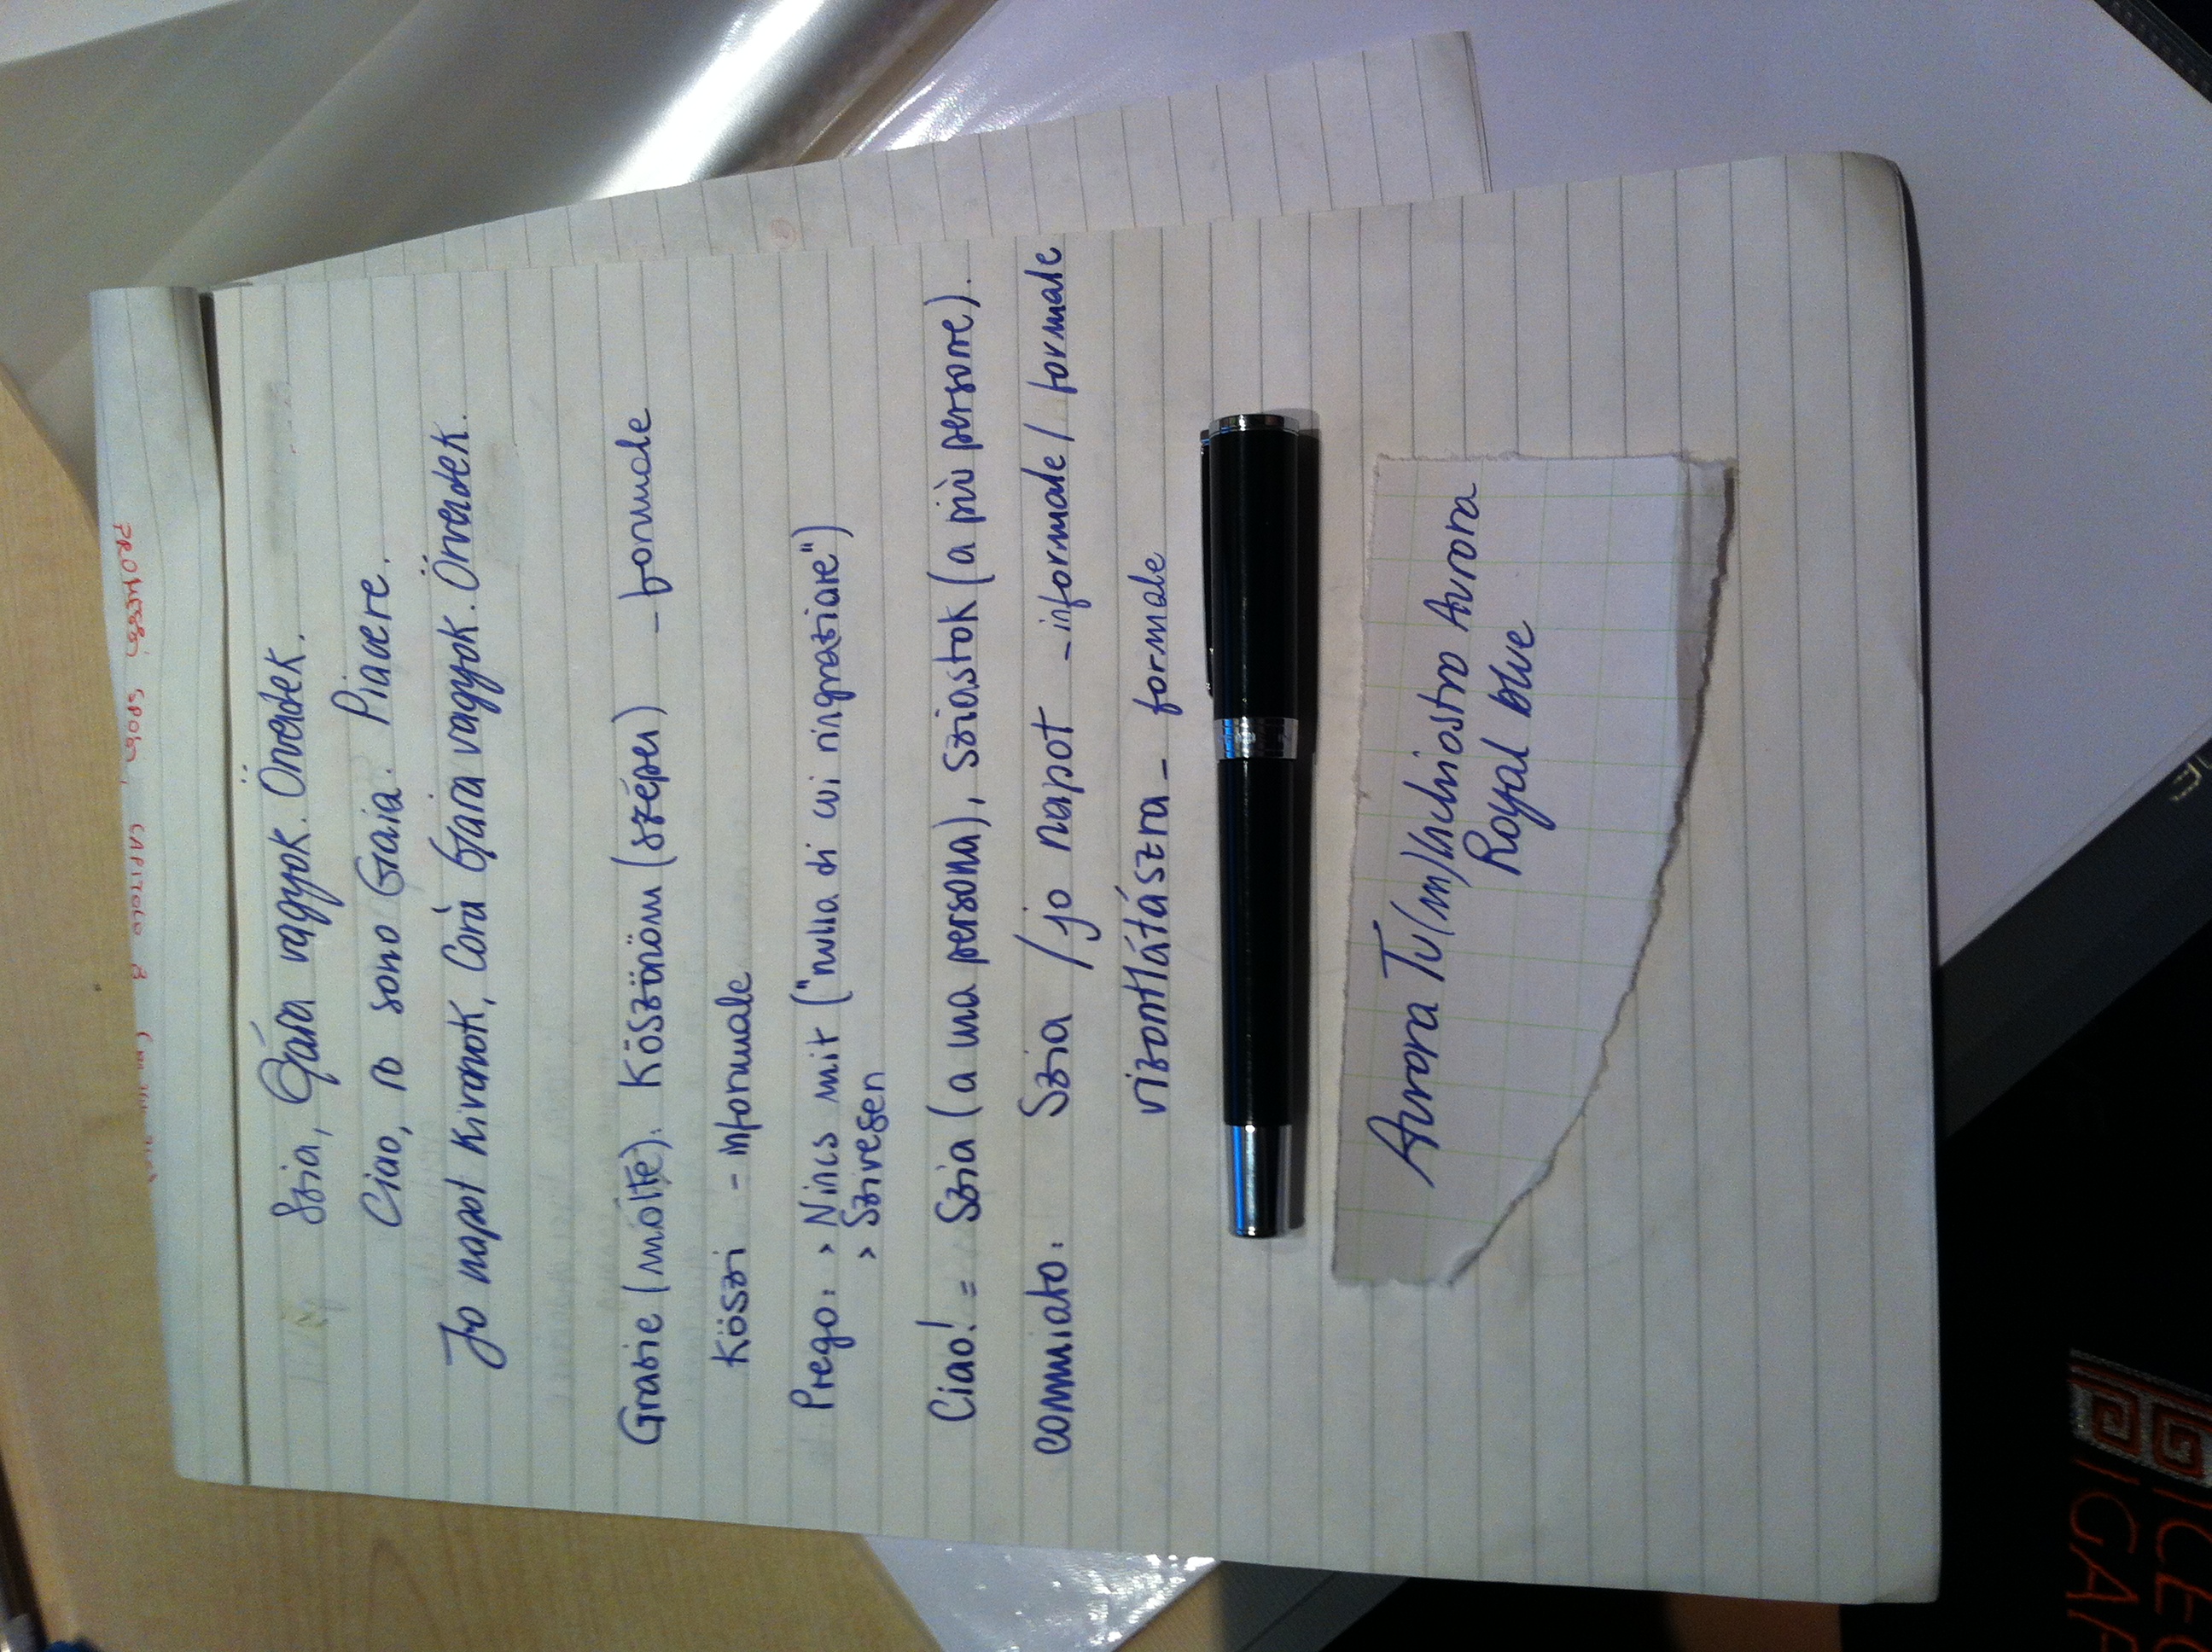 Szia, Gára vagyok. Örvedek.
Ciao, io sono Gaia. Piacere.
Jo napot Kivanok, Corà Gára vagyok. Örvendek.
Grazie (molte): Köszönöm (szépen) - formale
Köszi - informale
Prego: > Nincs mit ("nulla di cui ringraziare")
> Szivesen
Ciao! = Szia (a una persona), Sziastok (a più persone).
commiato: Szia / jo napot - informale / formale
viszontlátászra - formale
Aurora Tu(m)/inchiostro Aurora
Royal blue
PROMESSI SPOSI, CAPITOLO 8